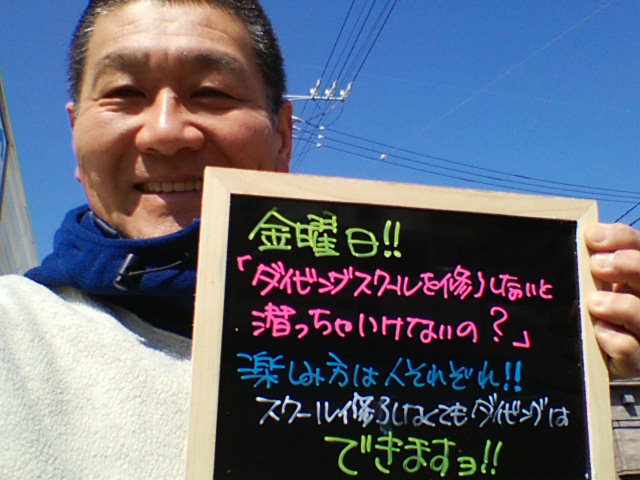 金曜日!!
「ダイビングスクールを修了しないと
潜っちゃいけないの?」
楽しみ方は人それぞれ!!
スクール修了しなくてもダイビングは
できますョ!!